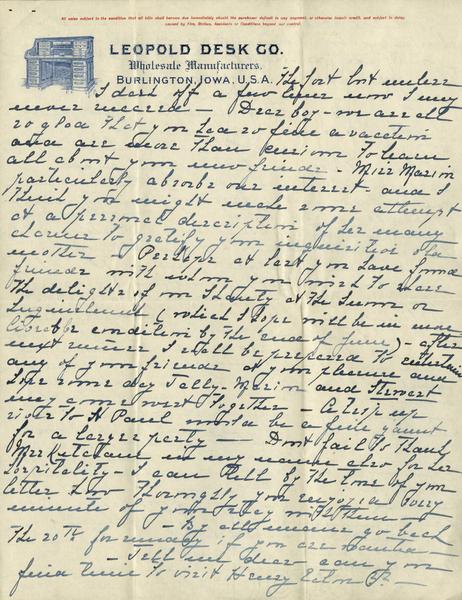 All sales subject to the condition that all bills shall become due immediately should the purchaser default in any payment, or otherwise impair credit, and subject to delay
caused by Fire, Strikes, Accidents or Conditions beyond our control.
LEOPOLD DESK CO.
Wholesale Manufacturers.
BURLINGTON, IOWA. U.S.A. The Fort but unless
I dash off a few lines now I may
never succeed - Dear boy - we are all
so glad that you had so fine a vacation
and are more than curious to learn
all about your new friends - Miss Marion
particularly absorbs our interest - and I
think you might make some attempt
at a personal description of her many
charms to gratify your inquisitive old
mother - Perhaps at last you have found
friends with whom you wish to share
the delights of our Shanty at the Lumm or
Lugenland (which I hope will be in more
livable condition by the end of June) - after
next summer I shall be prepared to entertain
any of your friends at your pleasure and
hope some day Sally - Marion and Stewart
may come west together - A trip up
river to St Paul would be a fine jaunt
for a larger party - Don't fail to thank
Mrs Ketcham in my name also for her
hospitality - I can tell by the tone of your
letter how thoroughly you enjoyed every
minute of your stay with them -
- By all means go back
the 20th for
 if you are
- Tell me dear can you
find time to visit Henry